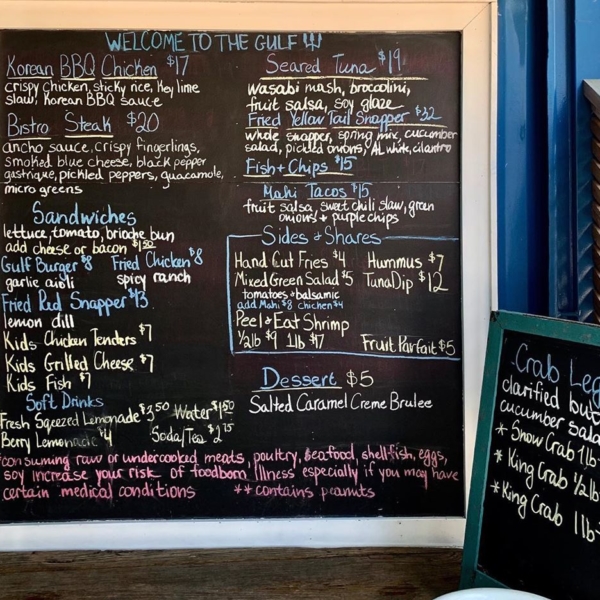 WELCOME TO THE GULF
Korean BBQ Chicken $17
crispy chicken, sticky rice, Key lime
slaw, Korean BBQ sauce
Bistro Steak $20
ancho sauce, crispy fingerlings,
smoked blue cheese, black pepper
gastrique, pickled peppers, guacamole,
micro greens
Sandwiches
lettuce, tomato, brioche bun
add cheese or bacon $1.50
Gulf Burger $8 Fried Chicken $8
garlic aioli spicy ranch
Fried Red Snapper $13
lemon dill
Kids Chicken Tenders $7
Kids Grilled Cheese $7
Kids Fish $7
Soft Drinks
Fresh Sqeezed Lemonade $3.50 Water $1.50
Berry Lemonade $4 Soda/Tea $2.75
Seared Tuna $19
wasabi mash, broccolini,
fruit salsa, soy glaze
Fried Yellow Tail Snapper $32
whole snapper, spring mix, cucumber
salad, pickled onions, AL white, cilantro
Fish + Chips $15
Mahi Tacos $15
fruit salsa, sweet chili slaw, green
onions + purple chips
Sides + Shares
Hand Cut Fries $4 Hummus $7
Mixed Green Salad $5 Tuna Dip $12
tomatoes + balsamic
add Mahi $8 chicken $4
Peel + Eat Shrimp
1/2lb $9 1lb $17 Fruit Parfait $5
Dessert $5
Salted Caramel Creme Brulee
*consuming raw or undercooked meats, poultry, seafood, shellfish, eggs,
soy increase your risk of foodborn illness especially if you may have
certain medical conditions **contains peanuts
Crab Leg
clarified but
cucumber sala
* Snow Crab 1lb-
* King Crab 1/2lb
* King Crab 1lb-